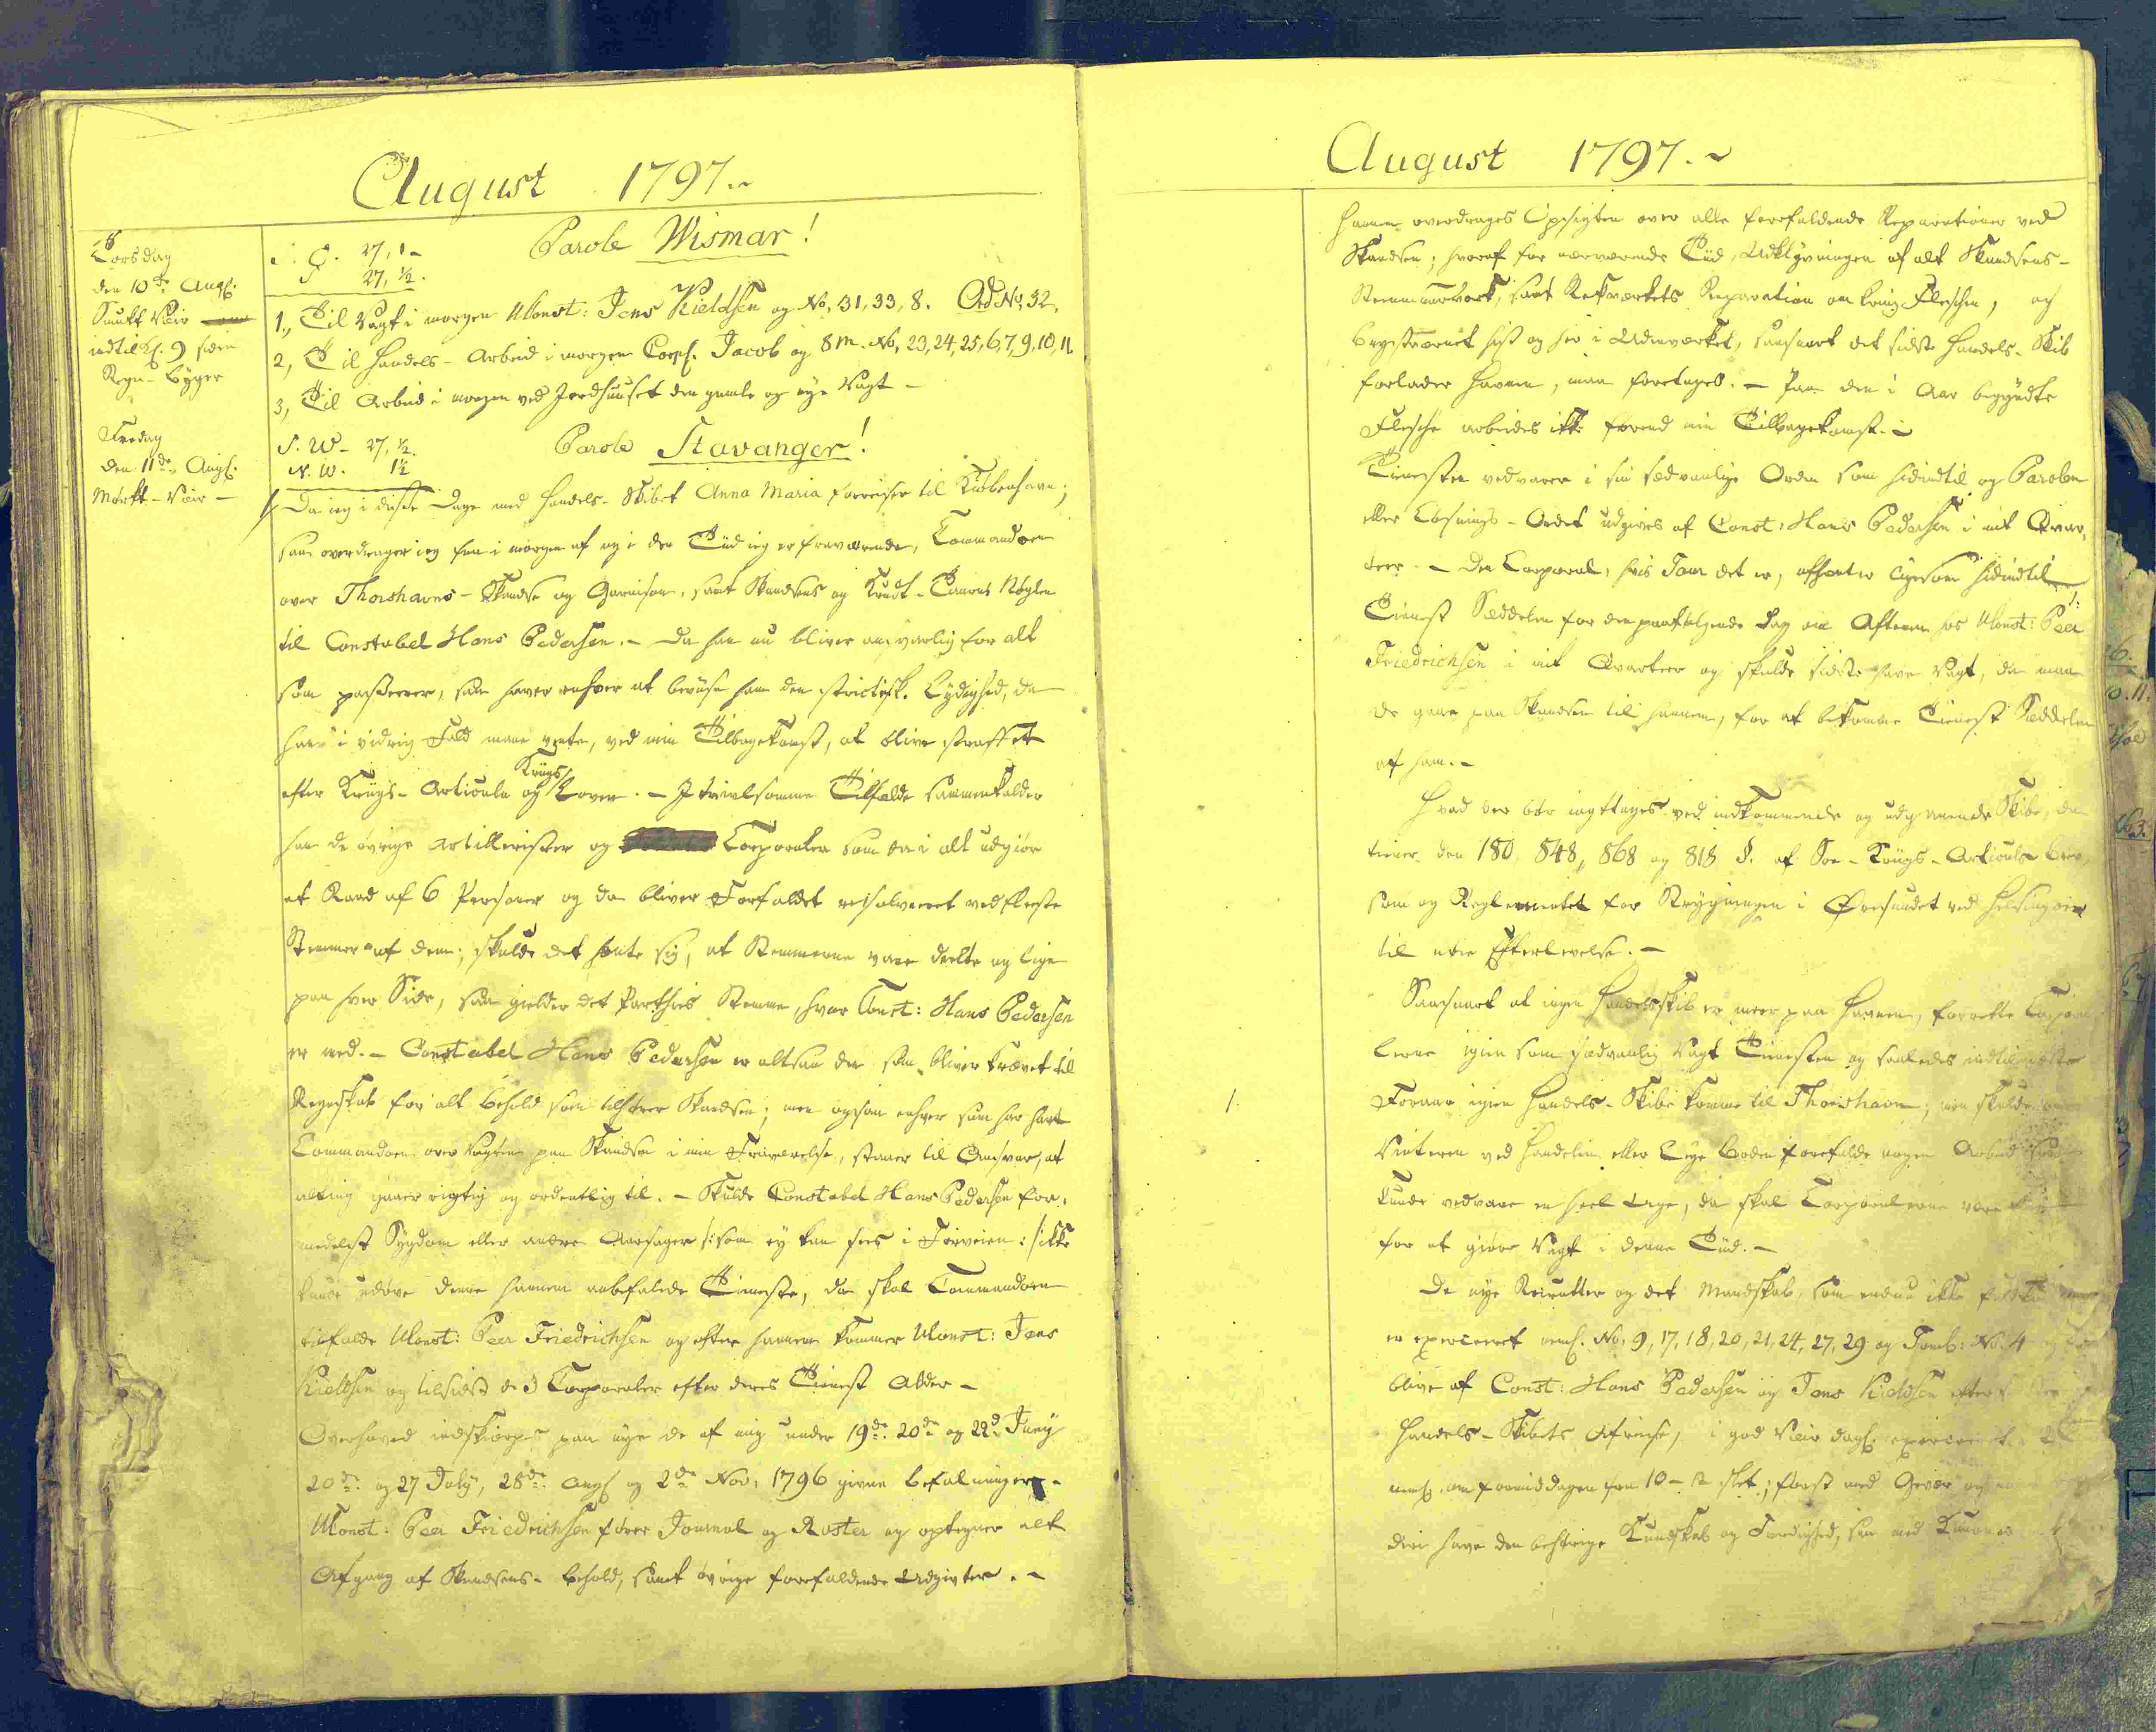 August 1797.
Torsdag
den 10de Aug:
Smukt Veir
indtil Kl. 9 siden
Regn-Byger
S. O. 27, 1-
S 27, 1/2.
Parole Wismar!
1, Til Vagt i morgen Monst: Jens Kieldsen og No, 31, 33, 8. Ord No, 32,
2, Til Handels-Arbeid i morgen Corpl. Jacob og 8 M. No, 23, 24, 25, 6, 7, 9, 10, 11.
3, Til Arbeid i morgen ved Jordhuuset den gamle og nye Vagt -
Fredag
den 11de, Aug:
Mørkt-Veir -
S. W - 27, 1/2.
N. W. 1 1/2
Parole Stavanger!
Da ieg i disse Dage med Handels-Skibet Anna Maria forreiser til Kiøbenhavn;
saa overdrager ieg fra i morgen af og i den Tiid ieg er fraværende, Commandoen
over Thorshavns-Skandse og Garnison, samt Skandsens og Krudt-Taarns Nøglen
til Constabel Hans Pedersen. - Da han nu bliver ansvarlig for alt
som passerer, saa haver enhver at beviise ham den stricteste Lydighed, da
han i vidrig Fald maae vente, ved min Tilbagekomst, at blive straffet
efter Kriigs-Articule og Kriigs Loven. - I tvivlsomme Tilfælde sammenkalder
han de øvrige Artillerister og Corporaler som da i alt udgiør
et Raad af 6 Personer og da bliver Forfaldet resolveret ved fleste
Stemmer af dem; skulde det hænde sig, at Stemmerne vare deelte og lige
paa hver Side, saa gielder det Parthies Stemme, hvor Const: Hans Pedersen
er med. - Constabel Hans Pedersen er altsaa den, som bliver krævet til
Regnskab for alt Behold som tilhører Skandsen; men ogsaa enhver som har havt
Commandoen over Vagten paa Skandsen i min Fraværelse, staaer til Ansvar, at
alting gaaer rigtig og ordentlig til. - Skulde Constabel Hans Pedersen for-
medelst Sygdom eller andre Aarsager /: som ey kan sees i Forveien :/ ikke
kunde udøve denne hannem anbefalede Tieneste, da skal Commandoen
tilfalde Monst: Peer Friedrichsen og efter hannem kommer Monst: Jens
Kieldsen og tilsidst de 3 Corporaler efter deres Tienest Alder -
Overhoved indskiærpes paa nye de af mig under 19de. 20de og 22d Juny
20de. og 27 July, 28de. Aug: og 2de Nov: 1796 givne Befalninger. -
Monst: Peer Friedrichsen fører Journal og Roster og optegner alt
Afgang af Skandsens-Behold, samt øvrige forefaldende Udgivter. -
August 1797.
Hannem overdrages Opsigten over alle forefaldende Reparationer ved
Skandsen; hvoraf for nærværende Tiid, Udklyvningen af alt Skandsens-
Steenmuurværk, samt Rekværkets Reparation omkring Flesche, og
Brystværnet hist og her i Udenværket, saasnart det sidste Handels-Skib
forlader Havnen, maa foretages. - Paa den i Aar begyndte
Flesche arbeides ikke førend min Tilbagekomst. -
Tienesten vedvarer i sin sædvanlige Orden som hidindtil og Parolen
eller Løsnings-Ordet udgives af Const: Hans Pedersen i mit Qvar-
teer. - Den Corporal, hvis Tour det er, afhenter ligesom hidindtil
Tienest Sæddelen for den paafølgende Dag om Aftenen hos Monst: Peer
Friedrichsen i mit Qvarteer og skulde sidste have Vagt, da maa
de gaae paa Skandsen til hannem, for at bekomme Tienest Sæddelen
af ham. -
Hvad der bør iagttages ved indkommende og udgaaende Skibe, da
tiener den 180, 848, 868 og 818 §. af Søe-Kriigs-Articuls Brev,
som og Reglementet for Strygningen i Øresundet ved Helsingøer
til nøie Efterlevelse. -
Saasnart at ingen Handelsskib er meer paa Havnen, forrette Corpora
lerne igien som sædvanlig Vagt Tienesten og saaledes indtil næste
Foraar igien Handels-Skibe komme til Thorshavn; men skulde om
Vinteren ved Handelen eller Leye Boden forefalde nogen Arbeid som
kunde vedvare en heel Uge, da skal Corporalerne være
for at giøre Vagt i denne Tiid. -
De nye Recrutter og det Mandskab, som endnu ikke
er exerceeret neml. No, 9, 17, 18, 20, 21, 24, 27, 29 og Tamb: No. 4 og
blive af Const: Hans Pedersen og Jens Kieldsen efter
Handels-Skibets Afreise, i god Veir dagl: exerceeret 2
neml. om Formiddagen fra 10-12 Slet; først med Gevær og naar
disse have den behørige Kundskab og Færdighed, saa med Kanoner
1.